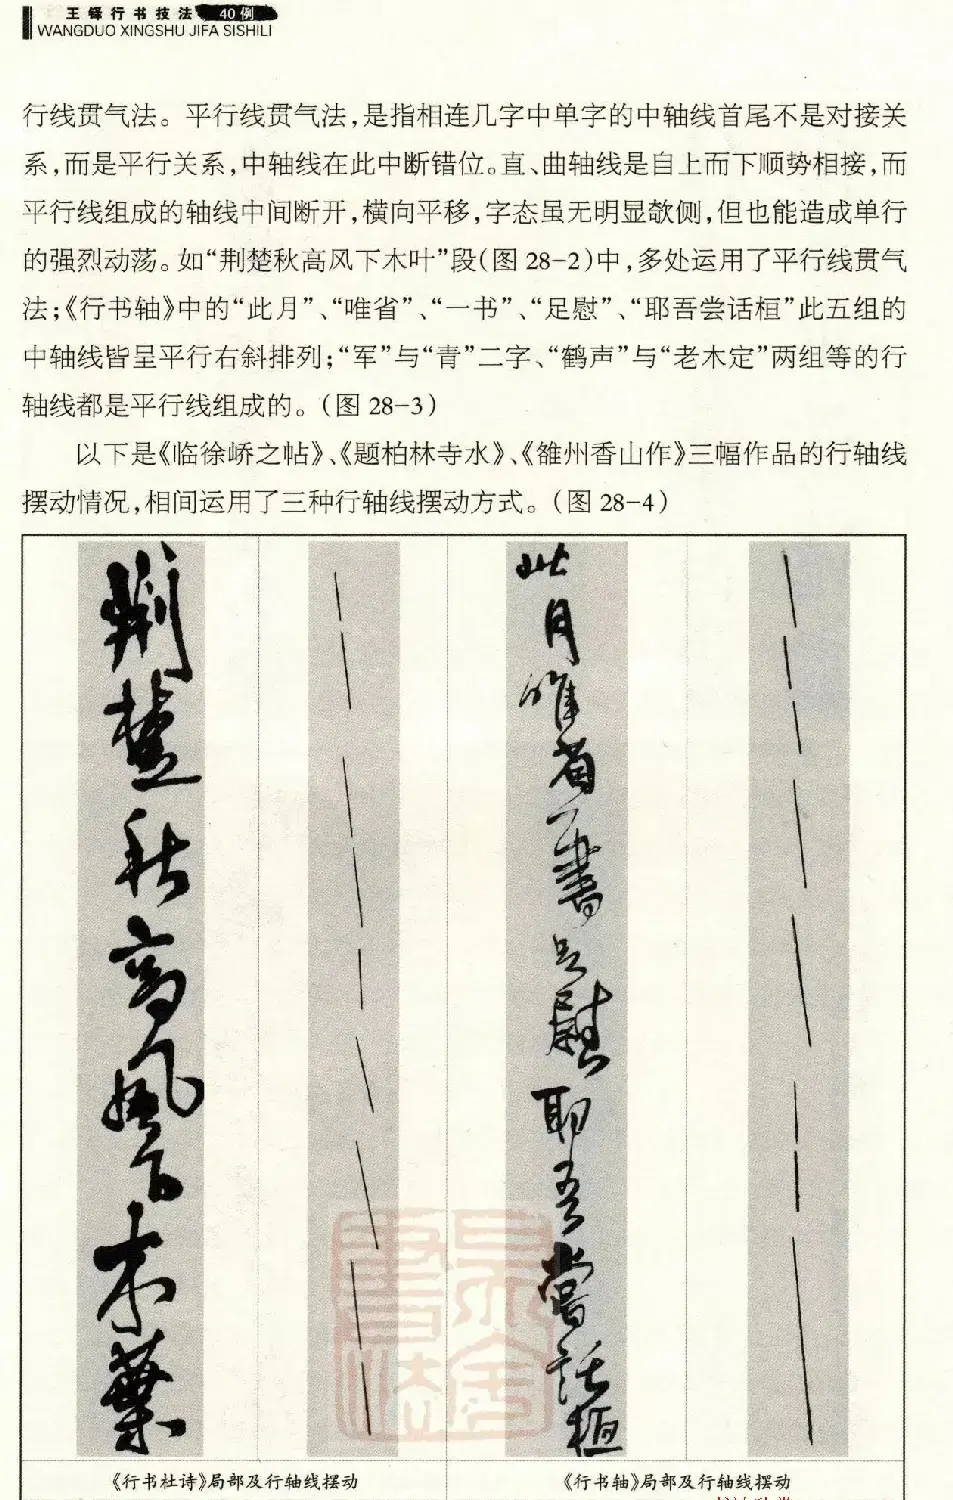 王铎行书技法 40例
WANGDUO XINGSHU JIFA SISHILI
行线贯气法。平行线贯气法，是指相连几字中单字的中轴线首尾不是对接关
系，而是平行关系，中轴线在此中断错位。直、曲轴线是自上而下顺势相接，而
平行线组成的轴线中间断开，横向平移，字态虽无明显欹侧，但也能造成单行
的强烈动荡。如“荆楚秋高风下木叶”段（图28-2）中，多处运用了平行线贯气
法；《行书轴》中的“此月”、“唯省”、“一书”、“足慰”、“耶吾尝话桓”此五组的
中轴线皆呈平行右斜排列；“军”与“青”二字、“鹤声”与“老木定”两组等的行
轴线都是平行线组成的。（图28-3）
以下是《临徐峤之帖》、《题柏林寺水》、《雒州香山作》三幅作品的行轴线
摆动情况，相间运用了三种行轴线摆动方式。（图28-4）
荆楚秋高风下木葉
此月唯省一書足慰耶吾嘗話桓
《行书杜诗》局部及行轴线摆动
《行书轴》局部及行轴线摆动